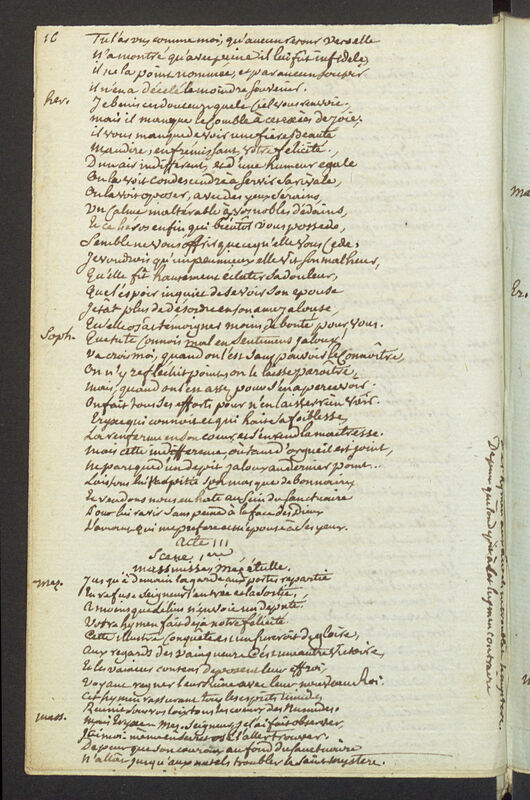 16
Tu l'as vu comme moi, qu'aucun retour vers elle
N'a montré qu'avec peine il lui fut infidele,
il ne la point nommée, et par aucun soupir
il n'en a décelé le moindre souvenir.
Her.
Je benis ces douceurs que le Ciel vous renvoie,
mais il manque le comble à ces excès de joie;
il vous manque de voir une fiere Beauté
Maudire, en fremissant, votre felicité.
D'un air indifferent, et d'une humeur egale
On la voit condescendre à servir sa rivale,
On la voit oposer, avec des yeux serains,
Un calme inaltérable à vos nobles dédains,
Et ce héros enfin qui bientôt vous possede,
Semble ne vous offrir que ce qu'elle vous cede;
Je voudrois qu'un peu mieux elle vit son malheur,
Qu'elle fit hautement eclater sa douleur,
Que l'espoir inquiet de se voir son epouse
Jetât plus de désordre en son ame jalouse,
Qu'elle osât témoigner moins de bonté pour vous.
Soph.
Que tu te connois mal en sentimens jaloux!
Va crois moi, quand on l'est sans pouvoir le connoître,
On n'y refléchit point, on le laisse paroître,
mais, quand on l'est assez pour s'en apercevoir,
On fait tous ses efforts pour n'en laisser rien voir.
Eryxe qui connoit et qui hait sa foiblesse,
La renferme en son coeur, et s'en rend la maitresse.
mais cette indifference, où tant d'orgueil est joint,
Ne part que d'un depit jaloux au dernier point.
Laissons lui son masque de bonnaire,
Et rendons nous en hate au sein du Sanctuaire
Pour lui ravir sans peine à la face des Dieux
L'amant qui me prefere et m'epouse à ses yeux.
Acte III
Scene 1ere
massinisse, Mezétulle.
Mez.
Jusqu'à demain la garde aux portes repartie
En refuse Seigneur l'entrée et la sortie,
A moins que Lelius n'y envoie un deputé.
Votre hymen fait déjà notre félicité
Cette illustre conquête est un surcroit de gloire,
Aux regards des vainqueurs c'est une autre Victoire,
Et les vaincus contens deposent leur effroi
Voyant regner leur Reine avec leur nouveau Roi.
Cet hymen rassurant tous les esprits timides,
Réunit sous vos loix tous les coeurs des Numides.
mass.
Mais Eryxe — Mez. Seigneur, je l'ai fait observer,
J'ai moi même en secret osé l'aller trouver.
De peur que son couroux au fond du Sanctuaire
N'allât jusqu'aux autels troubler le saint mystère.
De peur que l'on à cet hymen contraire
Ma
Er.